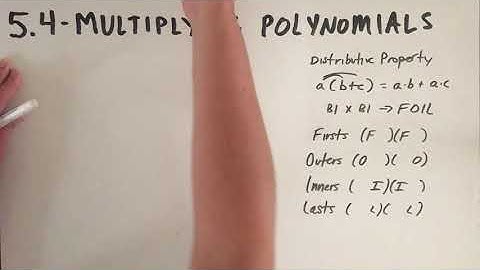 5.4-MULTIPLY POLYNOMIALS
Distributive Property
a(b+c) = a·b + a·c
BI x BI → FOIL
Firsts (F )(F )
Outers (O )( O)
Inners ( I)(I )
Lasts ( L)( L)